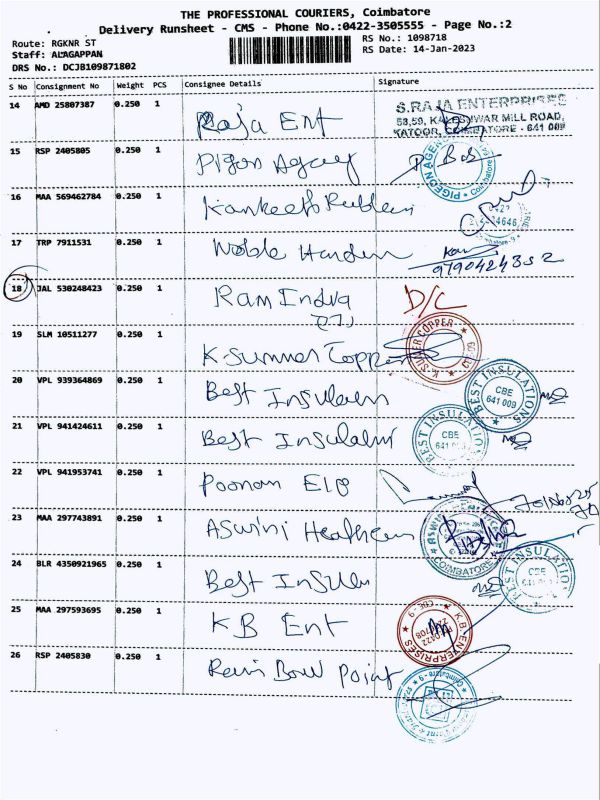 THE PROFESSIONAL COURIERS, Coimbatore
Delivery Runsheet - CMS - Phone No.:0422-3505555 - Page No.:2
Route: RGKNR ST RS No.: 1098718
Staff: ALAGAPPAN RS Date: 14-Jan-2023
DRS No.: DCJB109871802
S No Consignment No Weight PCS Consignee Details Signature
14 AMD 25807387 0.250 1 Raja Ent S.RAJA ENTERPRISES
58,59, KALESHWAR MILL ROAD,
KATOOR, COIMBATORE - 641 009
15 RSP 2405805 0.250 1 Pigon Agency PIGEON AGENCY Coimbatore
16 MAA 569462784 0.250 1
17 TRP 7911531 0.250 1 Noble
18 JAL 530248423 0.250 1 Ram Indra D/C
19 SLM 10511277 0.250 1 K-Summer Copper K-SUMMER COPPER
20 VPL 939364869 0.250 1 Best BEST INSULATIONS CBE 641 009
21 VPL 941424611 0.250 1 Best BEST INSULATIONS CBE 641 009
22 VPL 941953741 0.250 1 Poonam
23 MAA 297743891 0.250 1 Aswini COIMBATORE
24 BLR 4350921965 0.250 1 Best BEST INSULATIONS CBE
25 MAA 297593695 0.250 1 KB Ent K.B. ENTERPRISES
26 RSP 2405830 0.250 1 Point